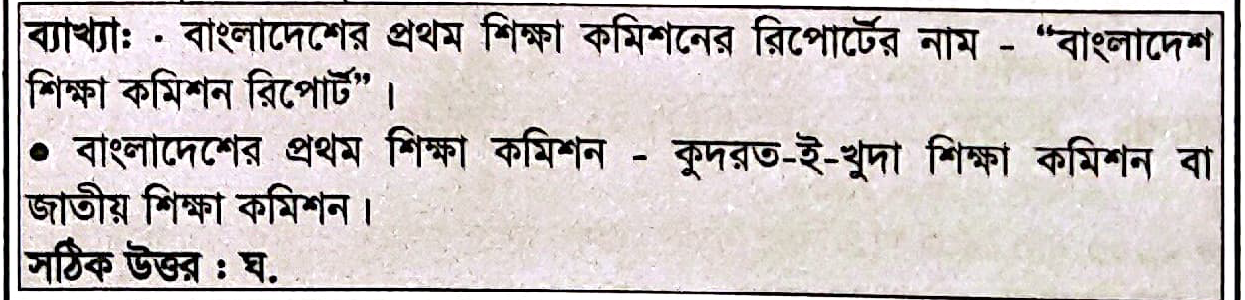 ব্যাখ্যা: · বাংলাদেশের প্রথম শিক্ষা কমিশনের রিপোর্টের নাম - “বাংলাদেশ
শিক্ষা কমিশন রিপোর্ট”।
● বাংলাদেশের প্রথম শিক্ষা কমিশন - কুদরত-ই-খুদা শিক্ষা কমিশন বা
জাতীয় শিক্ষা কমিশন।
সঠিক উত্তর : ঘ.